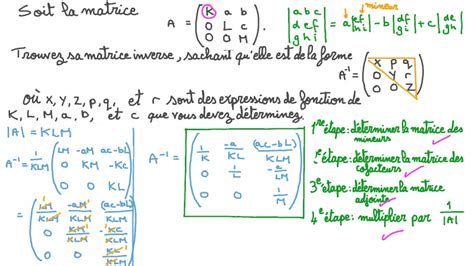 Soit la matrice
A = ( K a b
0 L c
0 0 M ) .
| a b c
d e f
g h i | = a | e f
h i | - b | d f
g i | + c | d e
g h |
mineur
Trouvez sa matrice inverse, sachant qu'elle est de la forme
A⁻¹ = ( X p q
0 Y r
0 0 Z )
où X, Y, Z, p, q, et r sont des expressions de fonction de
K, L, M, a, b, et c que vous devez déterminez.
|A| = KLM
A⁻¹ = 1/KLM ( LM -aM ac-bL
0 KM -Kc
0 0 KL )
= ( LM/KLM -aM/KLM (ac-bL)/KLM
0 KM/KLM -Kc/KLM
0 0 KL/KLM )
A⁻¹ = ( 1/K -a/KL (ac-bL)/KLM
0 1/L -c/LM
0 0 1/M )
1re étape: déterminer la matrice des
mineurs
2e étape: déterminer la matrice des
cofacteurs
3e étape: déterminer la matrice
adjointe
4e étape: multiplier par 1/|A|